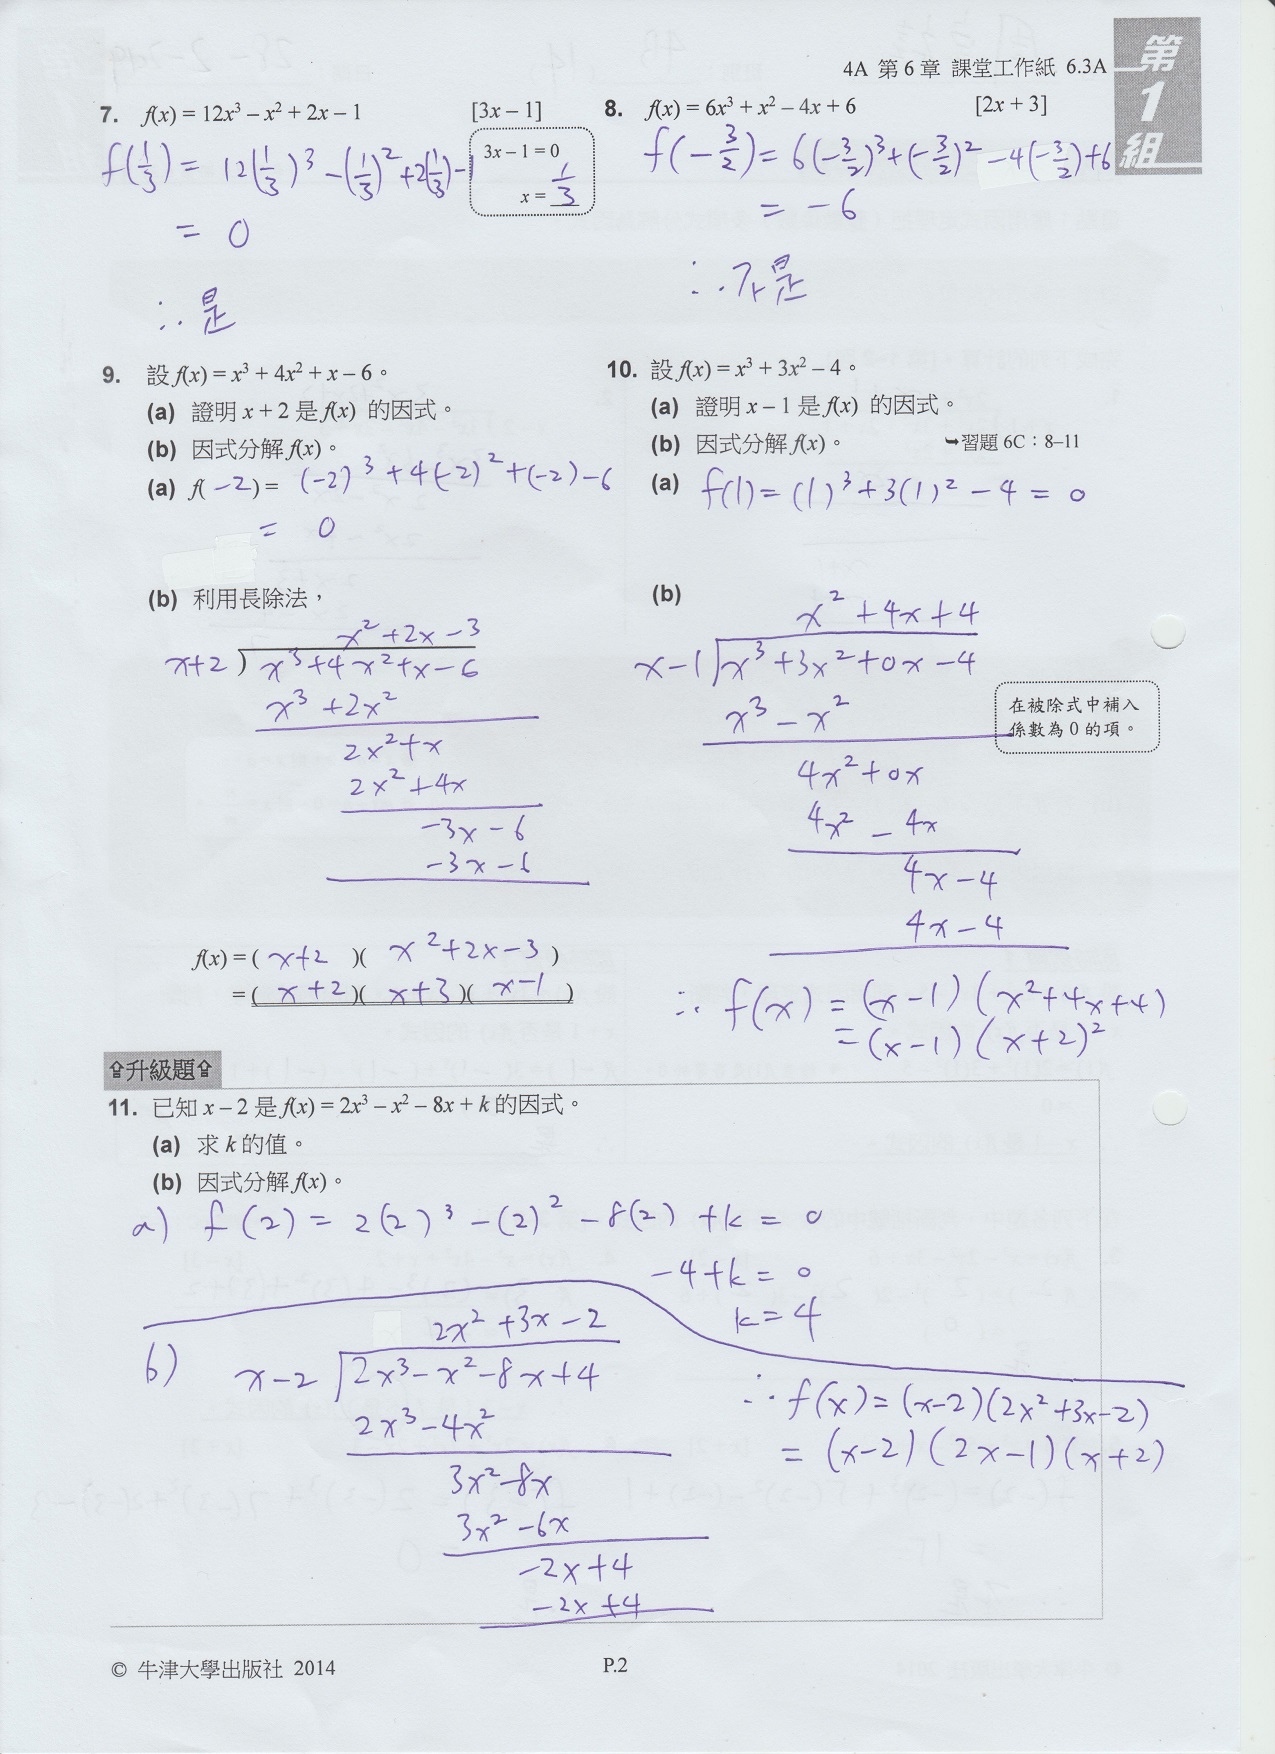 4A 第 6 章 課堂工作紙 6.3A
第
1
組
7. f(x) = 12x³ – x² + 2x – 1 [3x – 1]
f(1/3) = 12(1/3)³ – (1/3)² + 2(1/3) – 1
3x – 1 = 0
x = 1/3
= 0
∴ 是
8. f(x) = 6x³ + x² – 4x + 6 [2x + 3]
f(–3/2) = 6(–3/2)³ + (–3/2)² – 4(–3/2) + 6
= –6
∴ 不是
9. 設 f(x) = x³ + 4x² + x – 6。
(a) 證明 x + 2 是 f(x) 的因式。
(b) 因式分解 f(x)。
(a) f( –2 ) = (–2)³ + 4(–2)² + (–2) – 6
= 0
(b) 利用長除法，
x² + 2x – 3
x+2 ) x³ + 4x² + x – 6
x³ + 2x²
2x² + x
2x² + 4x
–3x – 6
–3x – 6
f(x) = ( x+2 )( x² + 2x – 3 )
= ( x+2 )( x+3 )( x–1 )
10. 設 f(x) = x³ + 3x² – 4。
(a) 證明 x – 1 是 f(x) 的因式。
(b) 因式分解 f(x)。 ➥習題 6C：8–11
(a) f(1) = (1)³ + 3(1)² – 4 = 0
(b)
x² + 4x + 4
x–1 ) x³ + 3x² + 0x – 4
x³ – x²
在被除式中補入
係數為 0 的項。
4x² + 0x
4x² – 4x
4x – 4
4x – 4
∴ f(x) = (x–1)(x²+4x+4)
= (x–1)(x+2)²
⇧升級題⇧
11. 已知 x – 2 是 f(x) = 2x³ – x² – 8x + k 的因式。
(a) 求 k 的值。
(b) 因式分解 f(x)。
a) f(2) = 2(2)³ – (2)² – 8(2) + k = 0
–4 + k = 0
k = 4
b)
2x² + 3x – 2
x–2 ) 2x³ – x² – 8x + 4
2x³ – 4x²
3x² – 8x
3x² – 6x
–2x + 4
–2x + 4
∴ f(x) = (x–2)(2x²+3x–2)
= (x–2)(2x–1)(x+2)
© 牛津大學出版社 2014
P.2